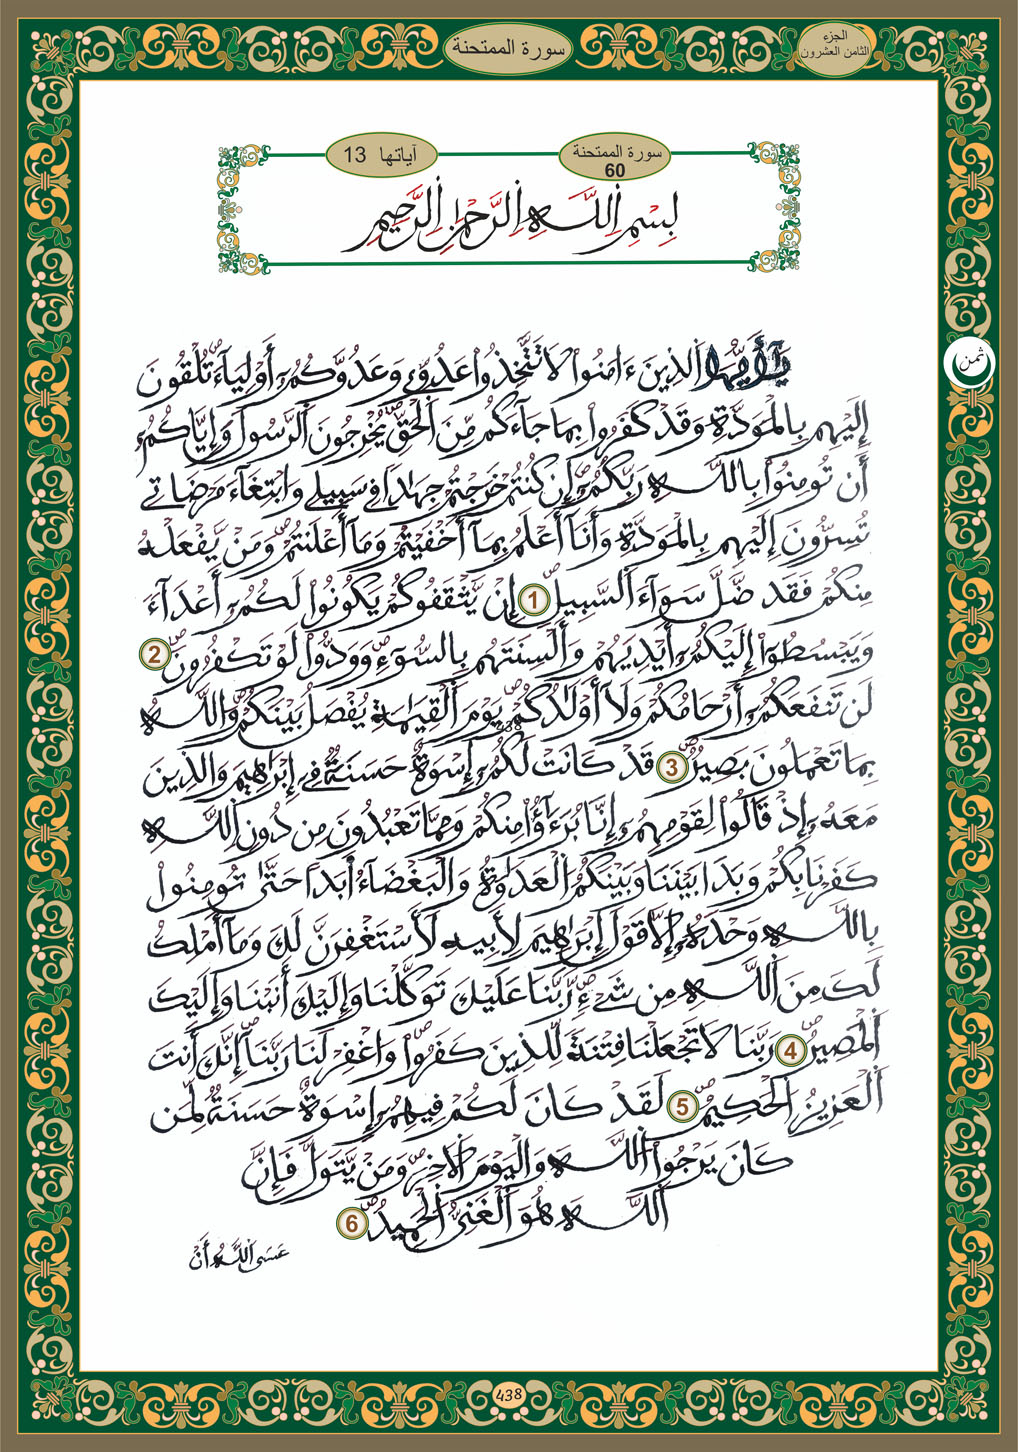 الجزء
الثامن العشرون
سورة الممتحنة
سورة الممتحنة
60
آياتها 13
بِسْمِ اِللَّهِ اِلرَّحْمَٰنِ اِلرَّحِيمِ
ثمن
يَٰٓأَيُّهَا اَلذِينَ ءَامَنُواْ لَا تَتَّخِذُواْ عَدُوِّے وَعَدُوَّكُمُۥٓ أَوْلِيَآءَ تُلْقُونَ
إِلَيْهِم بِالْمَوَدَّةِ وَقَدْ كَفَرُواْ بِمَا جَآءَكُم مِّنَ اَلْحَقِّ يُخْرِجُونَ اَلرَّسُولَ وَإِيَّاكُمُۥٓ
أَن تُومِنُواْ بِاللَّهِ رَبِّكُمُۥٓ إِن كُنتُمْ خَرَجْتُمْ جِهَٰداً فِے سَبِيلِے وَابْتِغَآءَ مَرْضَاتِے
تُسِرُّونَ إِلَيْهِم بِالْمَوَدَّةِ وَأَنَآ أَعْلَمُ بِمَآ أَخْفَيْتُمْ وَمَآ أَعْلَنتُمْ وَمَنْ يَّفْعَلْهُ
مِنكُمْ فَقَد ضَّلَّ سَوَآءَ اَلسَّبِيلِ 1 إِنْ يَّثْقَفُوكُمْ يَكُونُواْ لَكُمُۥٓ أَعْدَآءً
وَيَبْسُطُوٓاْ إِلَيْكُمُۥٓ أَيْدِيَهُمْ وَأَلْسِنَتَهُم بِالسُّوٓءِ وَوَدُّواْ لَوْ تَكْفُرُونَ 2
لَن تَنفَعَكُمُۥٓ أَرْحَامُكُمْ وَلَآ أَوْلَٰدُكُمْ يَوْمَ اَلْقِيَٰمَةِ يُفْصَلُ بَيْنَكُمْ وَاللَّهُ
بِمَا تَعْمَلُونَ بَصِيرٌ 3 قَدْ كَانَتْ لَكُمُۥٓ إِسْوَةٌ حَسَنَةٌ فِےٓ إِبْرَٰهِيمَ وَالذِينَ
مَعَهُۥٓ إِذْ قَالُواْ لِقَوْمِهِمُۥٓ إِنَّا بُرَءَٰٓؤُاْ مِنكُمْ وَمِمَّا تَعْبُدُونَ مِن دُونِ اِللَّهِ
كَفَرْنَا بِكُمْ وَبَدَا بَيْنَنَا وَبَيْنَكُمُ اُلْعَدَٰوَةُ وَالْبَغْضَآءُ اَبَداً حَتَّىٰ تُومِنُواْ
بِاللَّهِ وَحْدَهُۥٓ إِلَّا قَوْلَ إِبْرَٰهِيمَ لِأَبِيهِ لَأَسْتَغْفِرَنَّ لَكَ وَمَآ أَمْلِكُ
لَكَ مِنَ اَللَّهِ مِن شَےْءٍ رَّبَّنَا عَلَيْكَ تَوَكَّلْنَا وَإِلَيْكَ أَنَبْنَا وَإِلَيْكَ
اَلْمَصِيرُ 4 رَبَّنَا لَا تَجْعَلْنَا فِتْنَةً لِّلذِينَ كَفَرُواْ وَاغْفِرْ لَنَا رَبَّنَآ إِنَّكَ أَنتَ
اَلْعَزِيزُ اُلْحَكِيمُ 5 لَقَدْ كَانَ لَكُمْ فِيهِمُۥٓ إِسْوَةٌ حَسَنَةٌ لِّمَن
كَانَ يَرْجُواْ اُللَّهَ وَالْيَوْمَ اَلَاخِرَ وَمَنْ يَّتَوَلَّ فَإِنَّ
اَللَّهَ هُوَ اَلْغَنِيُّ اُلْحَمِيدُ 6
عَسَى اَللَّهُ أَنْ
438